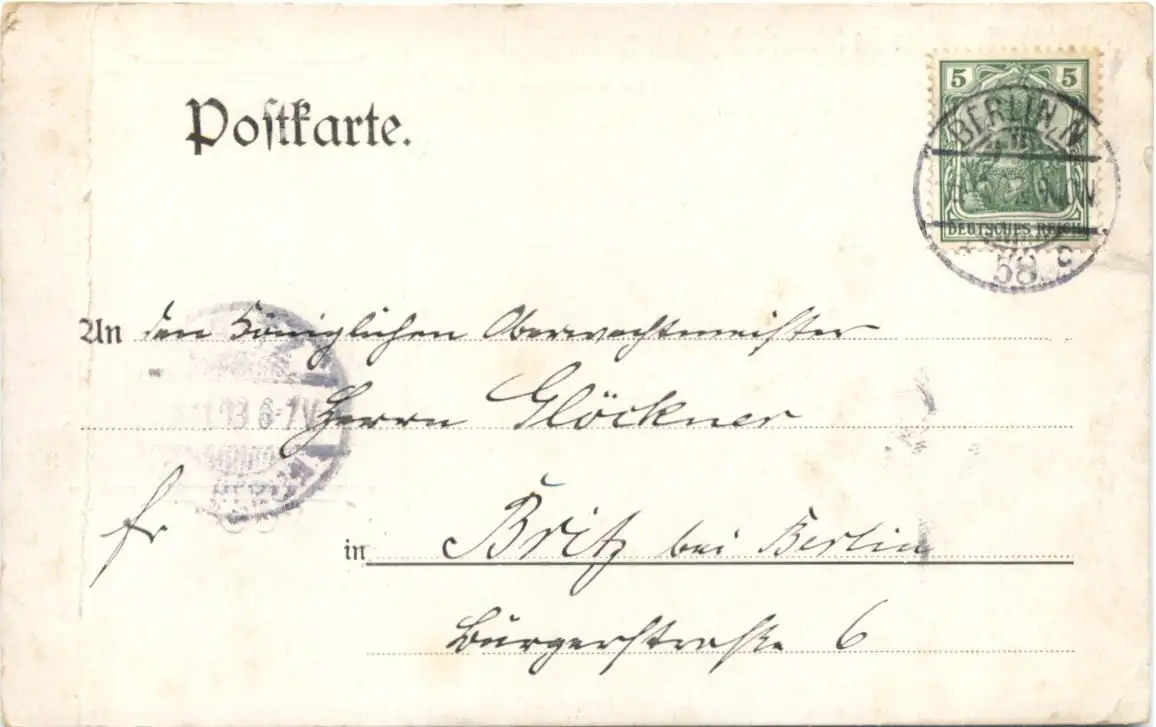 Postkarte.
5 5
BERLIN, N
DEUTSCHES REICH
58 c
An den Königlichen Oberwachtmeister
03 6-7V
Herrn Glöckner
fr
in Britz bei Berlin
Bürgerstraße 6